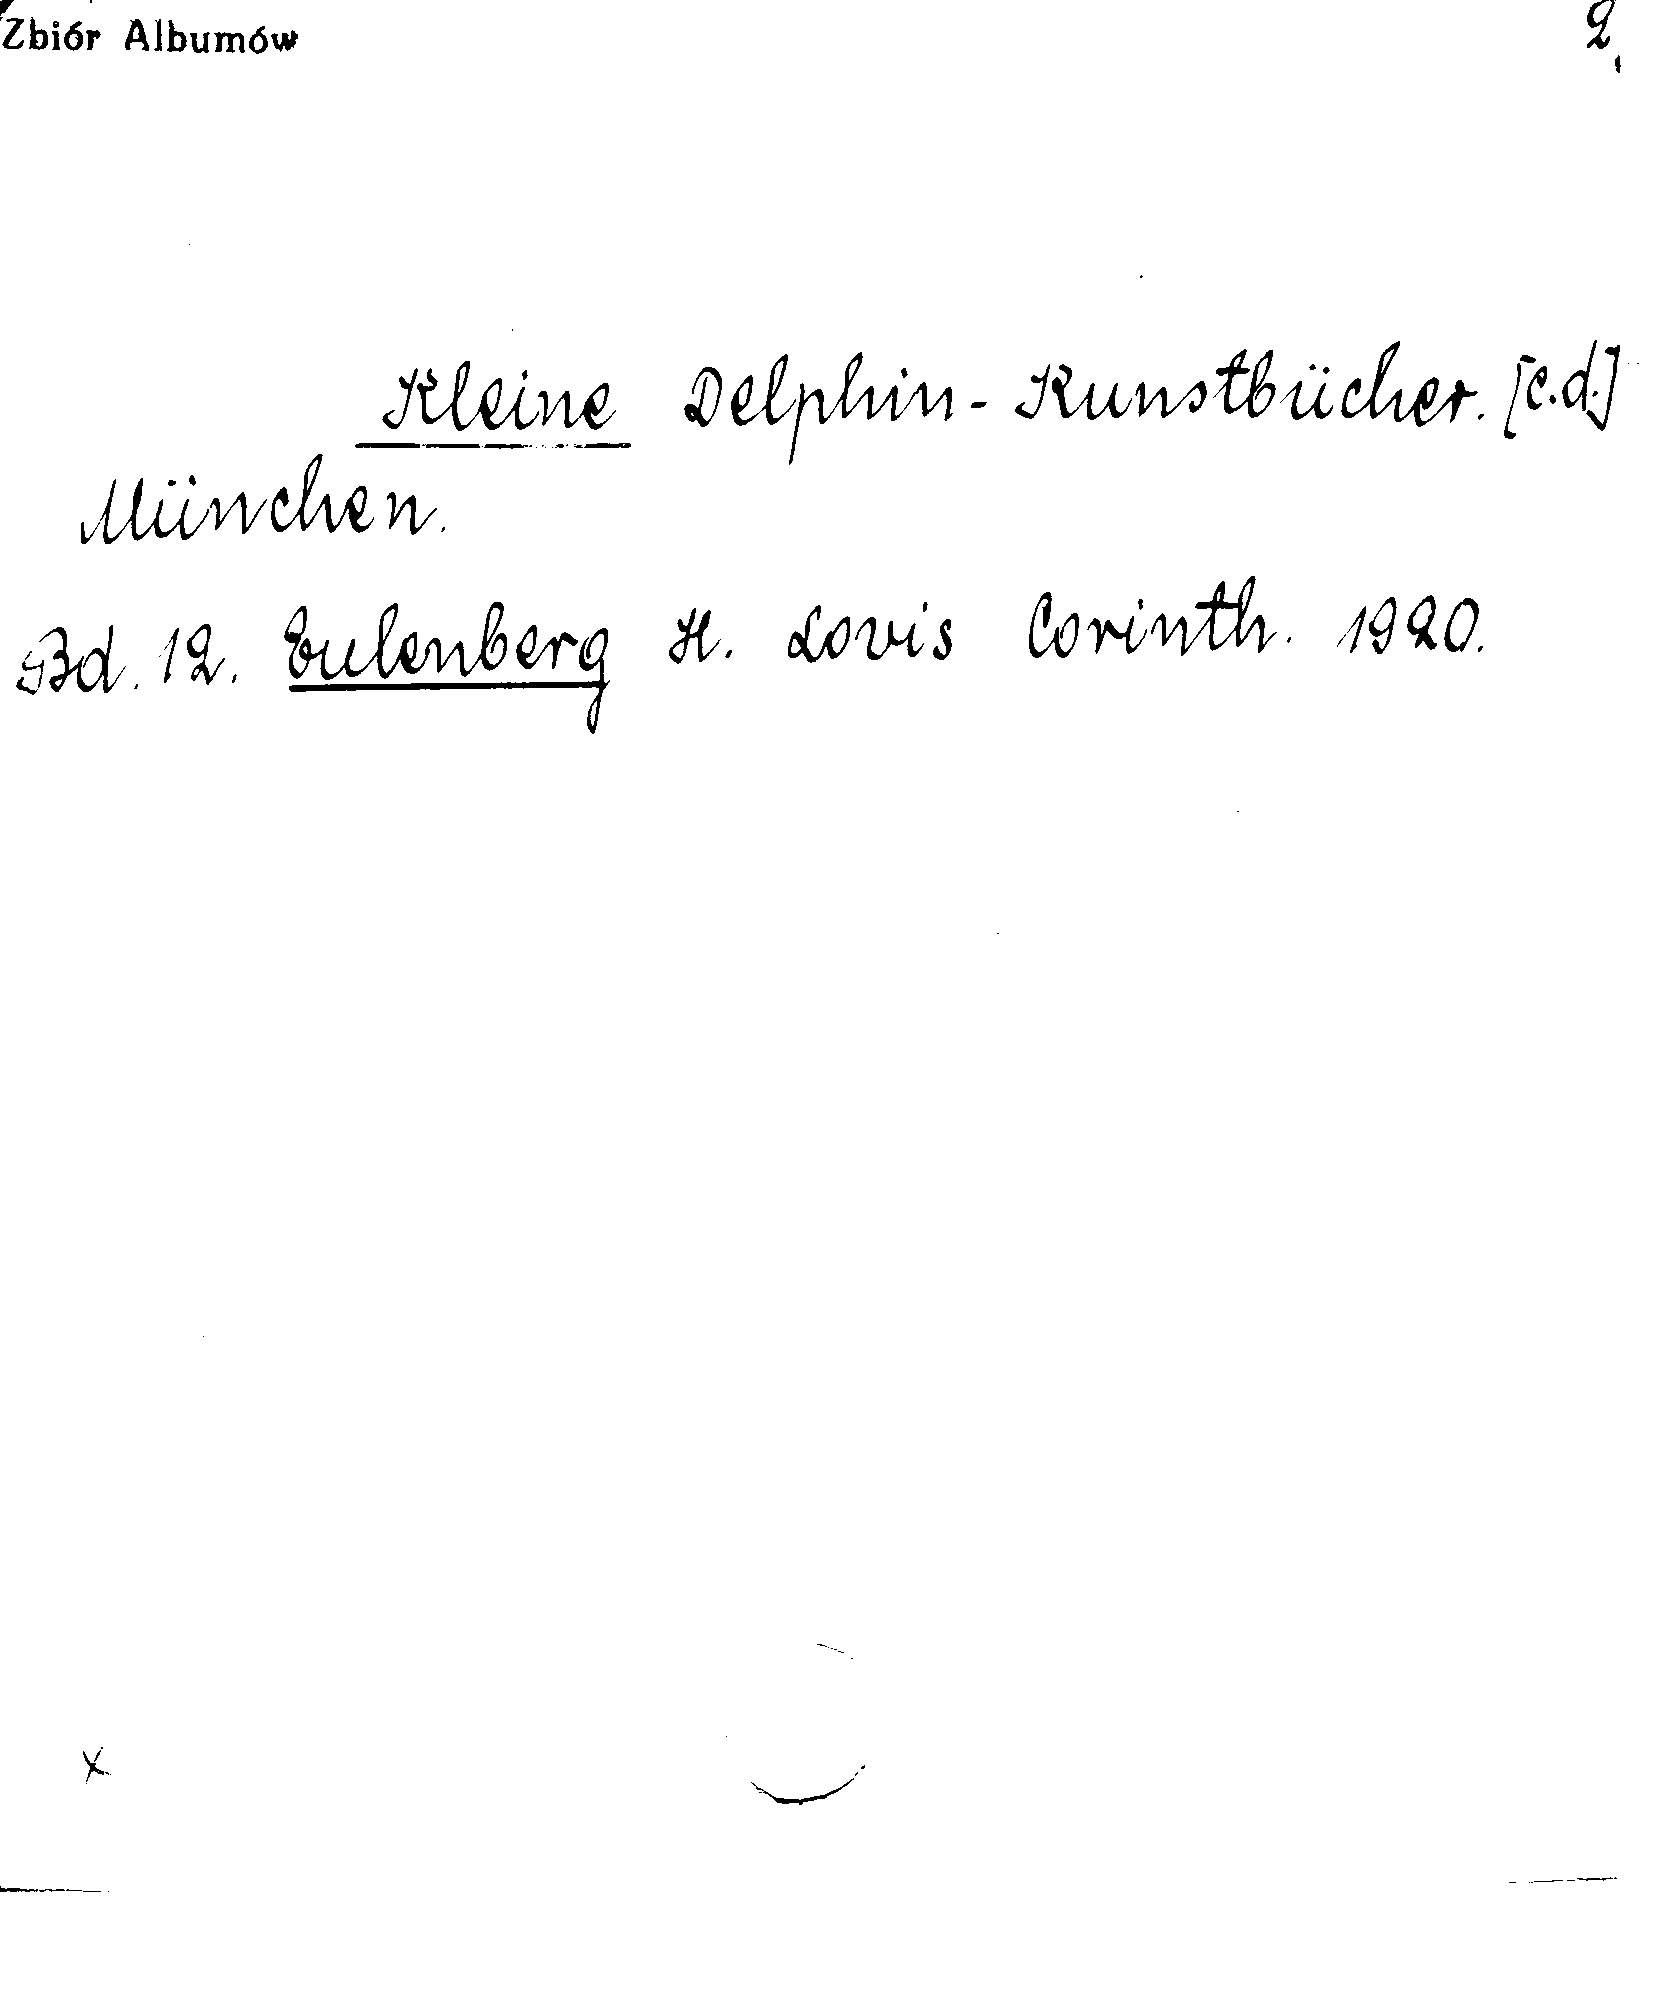 Zbiór Albumów 2.
Kleine Delphin-Kunstbücher. [c.d.]
München.
Bd. 12. Eulenberg H. Lovis Corinth. 1920.
x